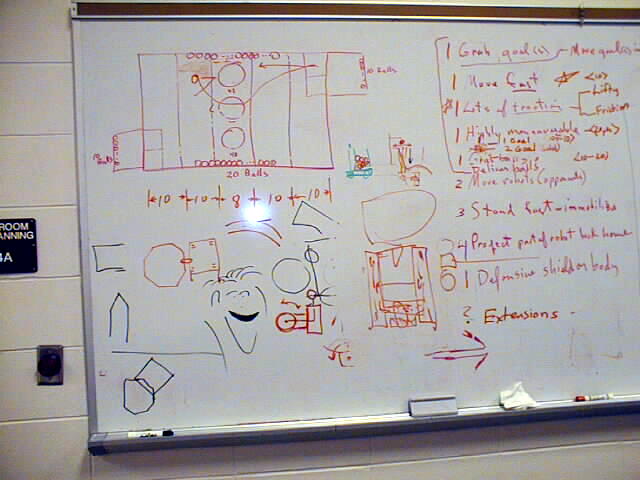 1 Grab goal(s) - More goals
10 Balls
1 Move fast <10>
1 Lots of traction
Lifting
Friction
1 Highly maneuverable
1 Goal
2 Goal
Deliver balls <10-20>
20 Balls
2 More robots (opponents)
10 10 8 10 10
3 Stand fast - immobilize
4 Project part of robot
1 Defensive shield on body
? Extensions -
ROOM
ANNING
4A